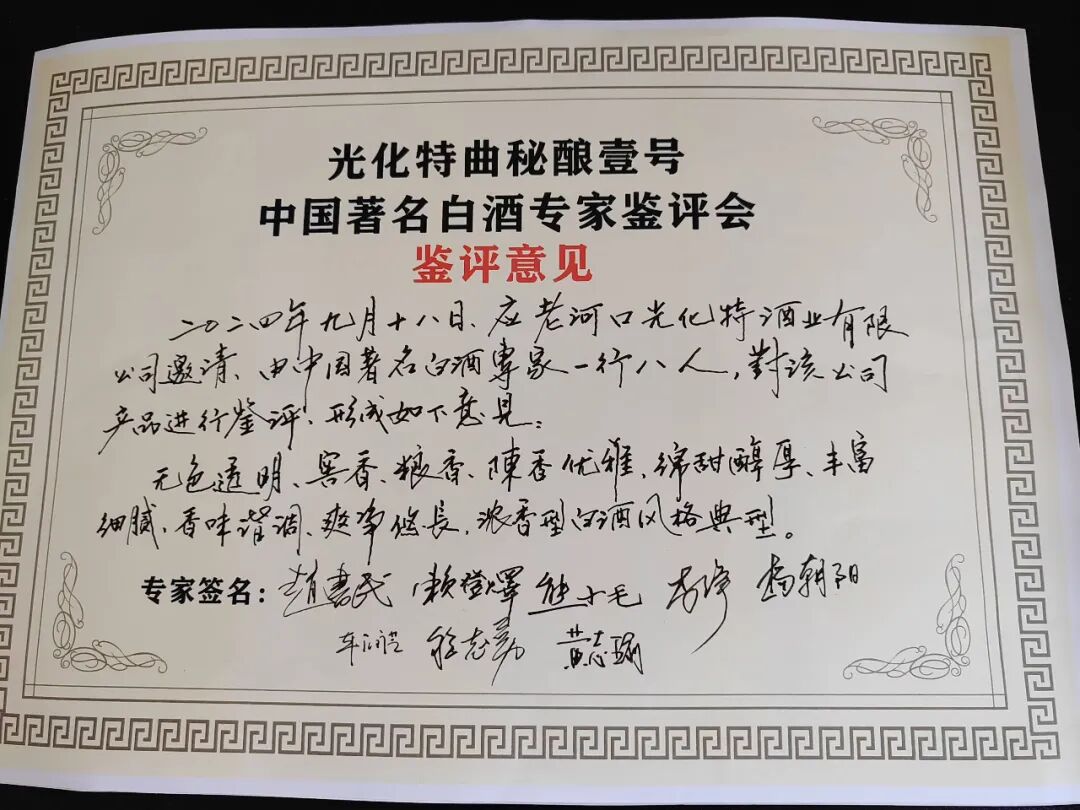 光化特曲秘酿壹号
中国著名白酒专家鉴评会
鉴评意见
二〇二四年九月十八日、应老河口光化特酒业有限
公司邀请、由中国著名白酒專家一行八人，對该公司
产品进行鉴评、形成如下意見：
无色透明、窖香、粮香、陳香优雅、绵甜醇厚、丰富
细腻、香味谐调、爽净悠長、浓香型白酒风格典型。
专家签名：趙書民 赖登燡 熊小毛 杨朝阳
程志勇 黄志瑜